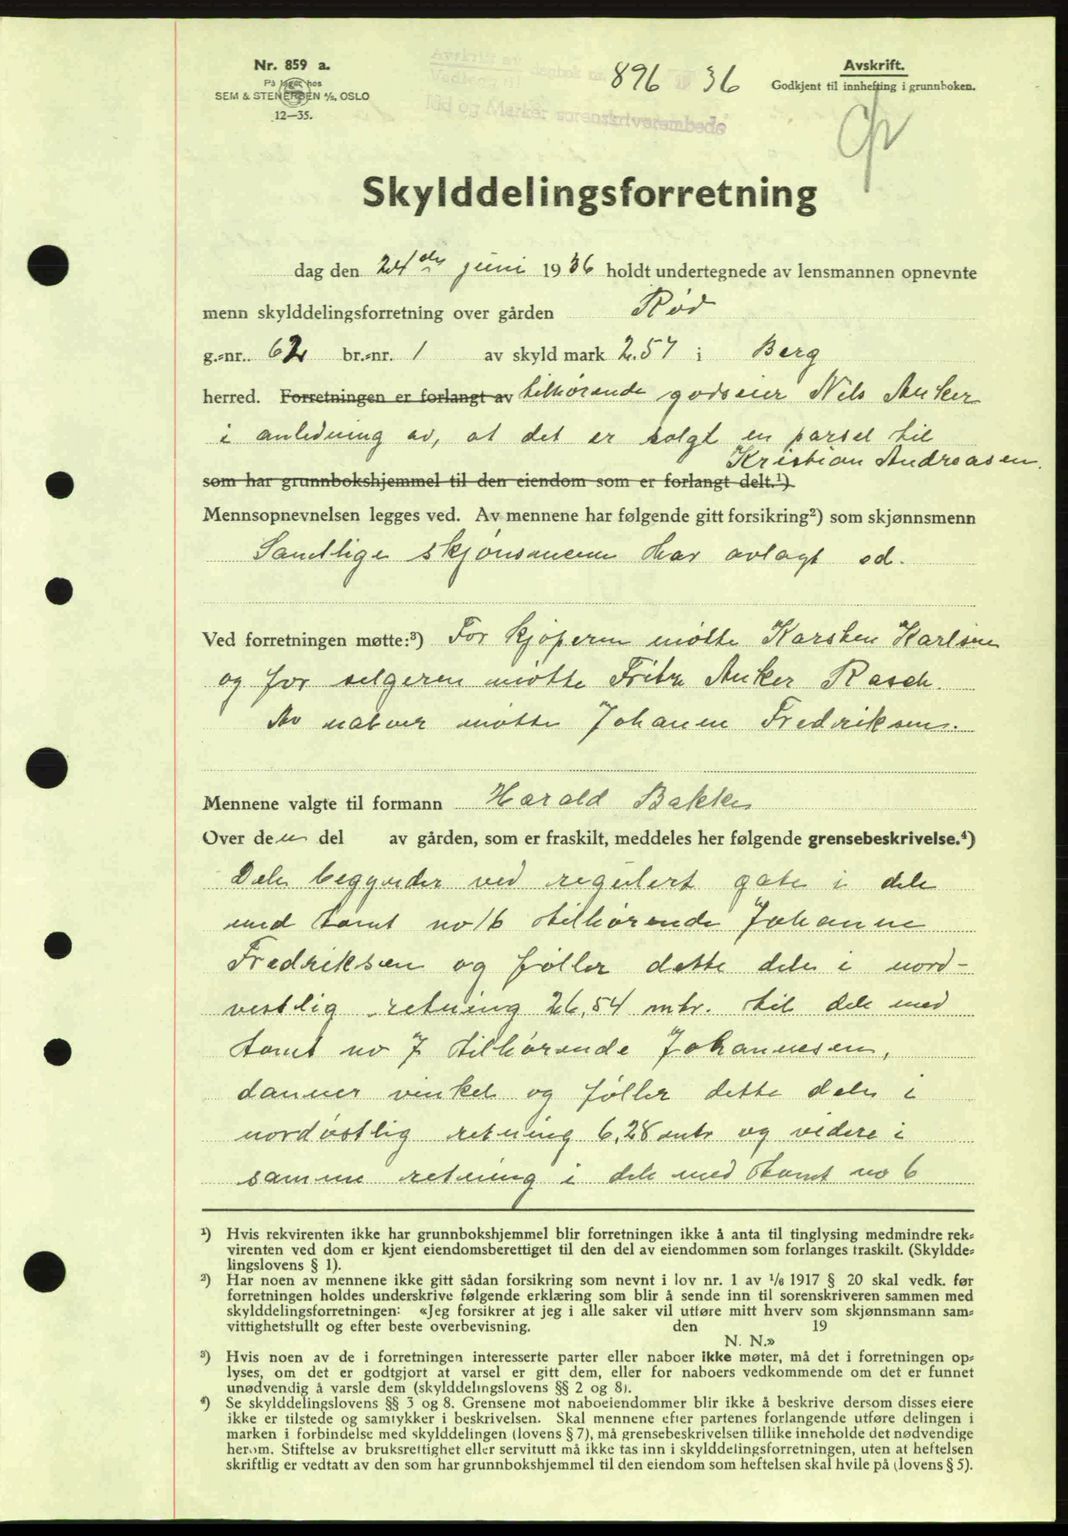 Nr. 859 a.
På lager hos
SEM & STENERSEN A/S, OSLO
12—35.
896 36
Avskrift.
Godkjent til innhefting i grunnboken.
Id og Marker sorenskriverembede
Skylddelingsforretning
dag den 24de juni 1936 holdt undertegnede av lensmannen opnevnte
menn skylddelingsforretning over gården Rød
g.-nr. 62 br.-nr. 1 av skyld mark 2.57 i Berg
herred. Forretningen er forlangt av tilhørende godseier Nils Anker
i anledning av, at det er solgt en parsel til
Kristian Andreasen.
som har grunnbokshjemmel til den eiendom som er forlangt delt.¹)
Mennsopnevnelsen legges ved. Av mennene har følgende gitt forsikring²) som skjønnsmenn
Samtlige skjønsmenn har avlagt ed.
Ved forretningen møtte:³) For kjøperen møtte Karsten Karlsen
og for selgeren møtte Fritz Anker Rasch.
Av naboer møtte Johanne Fredriksen.
Mennene valgte til formann Harald Bakke
Over den del av gården, som er fraskilt, meddeles her følgende grensebeskrivelse.⁴)
Dele begynder ved regulert gate i dele
med tomt no 16 tilhørende Johanne
Fredriksen og føller dette dele i nord-
vestlig retning 26,54 mtr. til dele med
tomt no 7 tilhørende Johannesen,
danner vinkel og føller dette dele i
nordøstlig retning 6,28 mtr og videre i
samme retning i dele med tomt no 6
¹) Hvis rekvirenten ikke har grunnbokshjemmel blir forretningen ikke å anta til tinglysing medmindre rek-
virenten ved dom er kjent eiendomsberettiget til den del av eiendommen som forlanges fraskilt. (Skyldde-
lingslovens § 1).
²) Har noen av mennene ikke gitt sådan forsikring som nevnt i lov nr. 1 av 1/6 1917 § 20 skal vedk. før
forretningen holdes underskrive følgende erklæring som blir å sende inn til sorenskriveren sammen med
skylddelingsforretningen: «Jeg forsikrer at jeg i alle saker vil utføre mitt hverv som skjønnsmann sam-
vittighetsfullt og efter beste overbevisning. den 19
N. N.»
³) Hvis noen av de i forretningen interesserte parter eller naboer ikke møter, må det i forretningen op-
lyses, om det er godtgjort at varsel er gitt dem, eller for naboers vedkommende om det er funnet
unødvendig å varsle dem (skylddelingslovens §§ 2 og 8).
⁴) Se skylddelingslovens §§ 3 og 8. Grensene mot naboeiendommer blir ikke å beskrive dersom disses eiere
ikke er tilstede og samtykker i beskrivelsen. Skal mennene efter partenes forlangende utføre delingen i
marken i forbindelse med skylddelingen (lovens § 7), må grensebeskrivelsen tillike inneholde det nødvendige
herom. Stiftelse av bruksrettighet eller servitutt må ikke tas inn i skylddelingsforretningen, uten at heftelsen
skriftlig er vedtatt av den som har grunnbokshjemmel til den eiendom som heftelsen skal hvile på (lovens § 5).